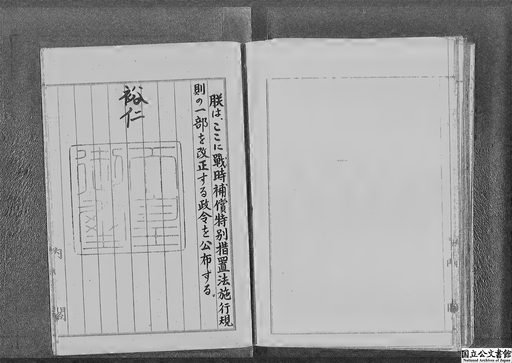 朕は、ここに戰時補償特別措置法施行規
則の一部を改正する政令を公布する。
裕仁
天皇
御璽
内閣
国立公文書館
National Archives of Japan